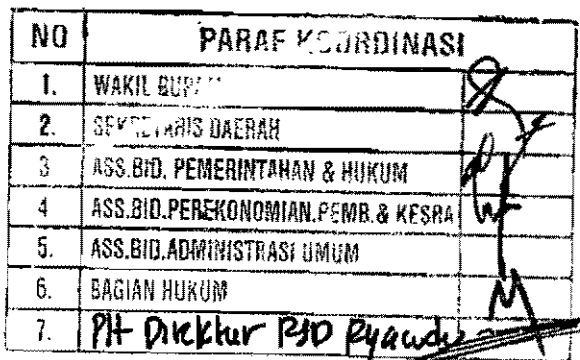 NO PARAF KOORDINASI
1. WAKIL BUPATI
2. SEKRETARIS DAERAH
3 ASS.BID. PEMERINTAHAN & HUKUM
4 ASS.BID.PEREKONOMIAN.PEMB.& KESRA
5. ASS.BID.ADMINISTRASI UMUM
6. BAGIAN HUKUM
7. Plt Direktur RSD Ryacudu